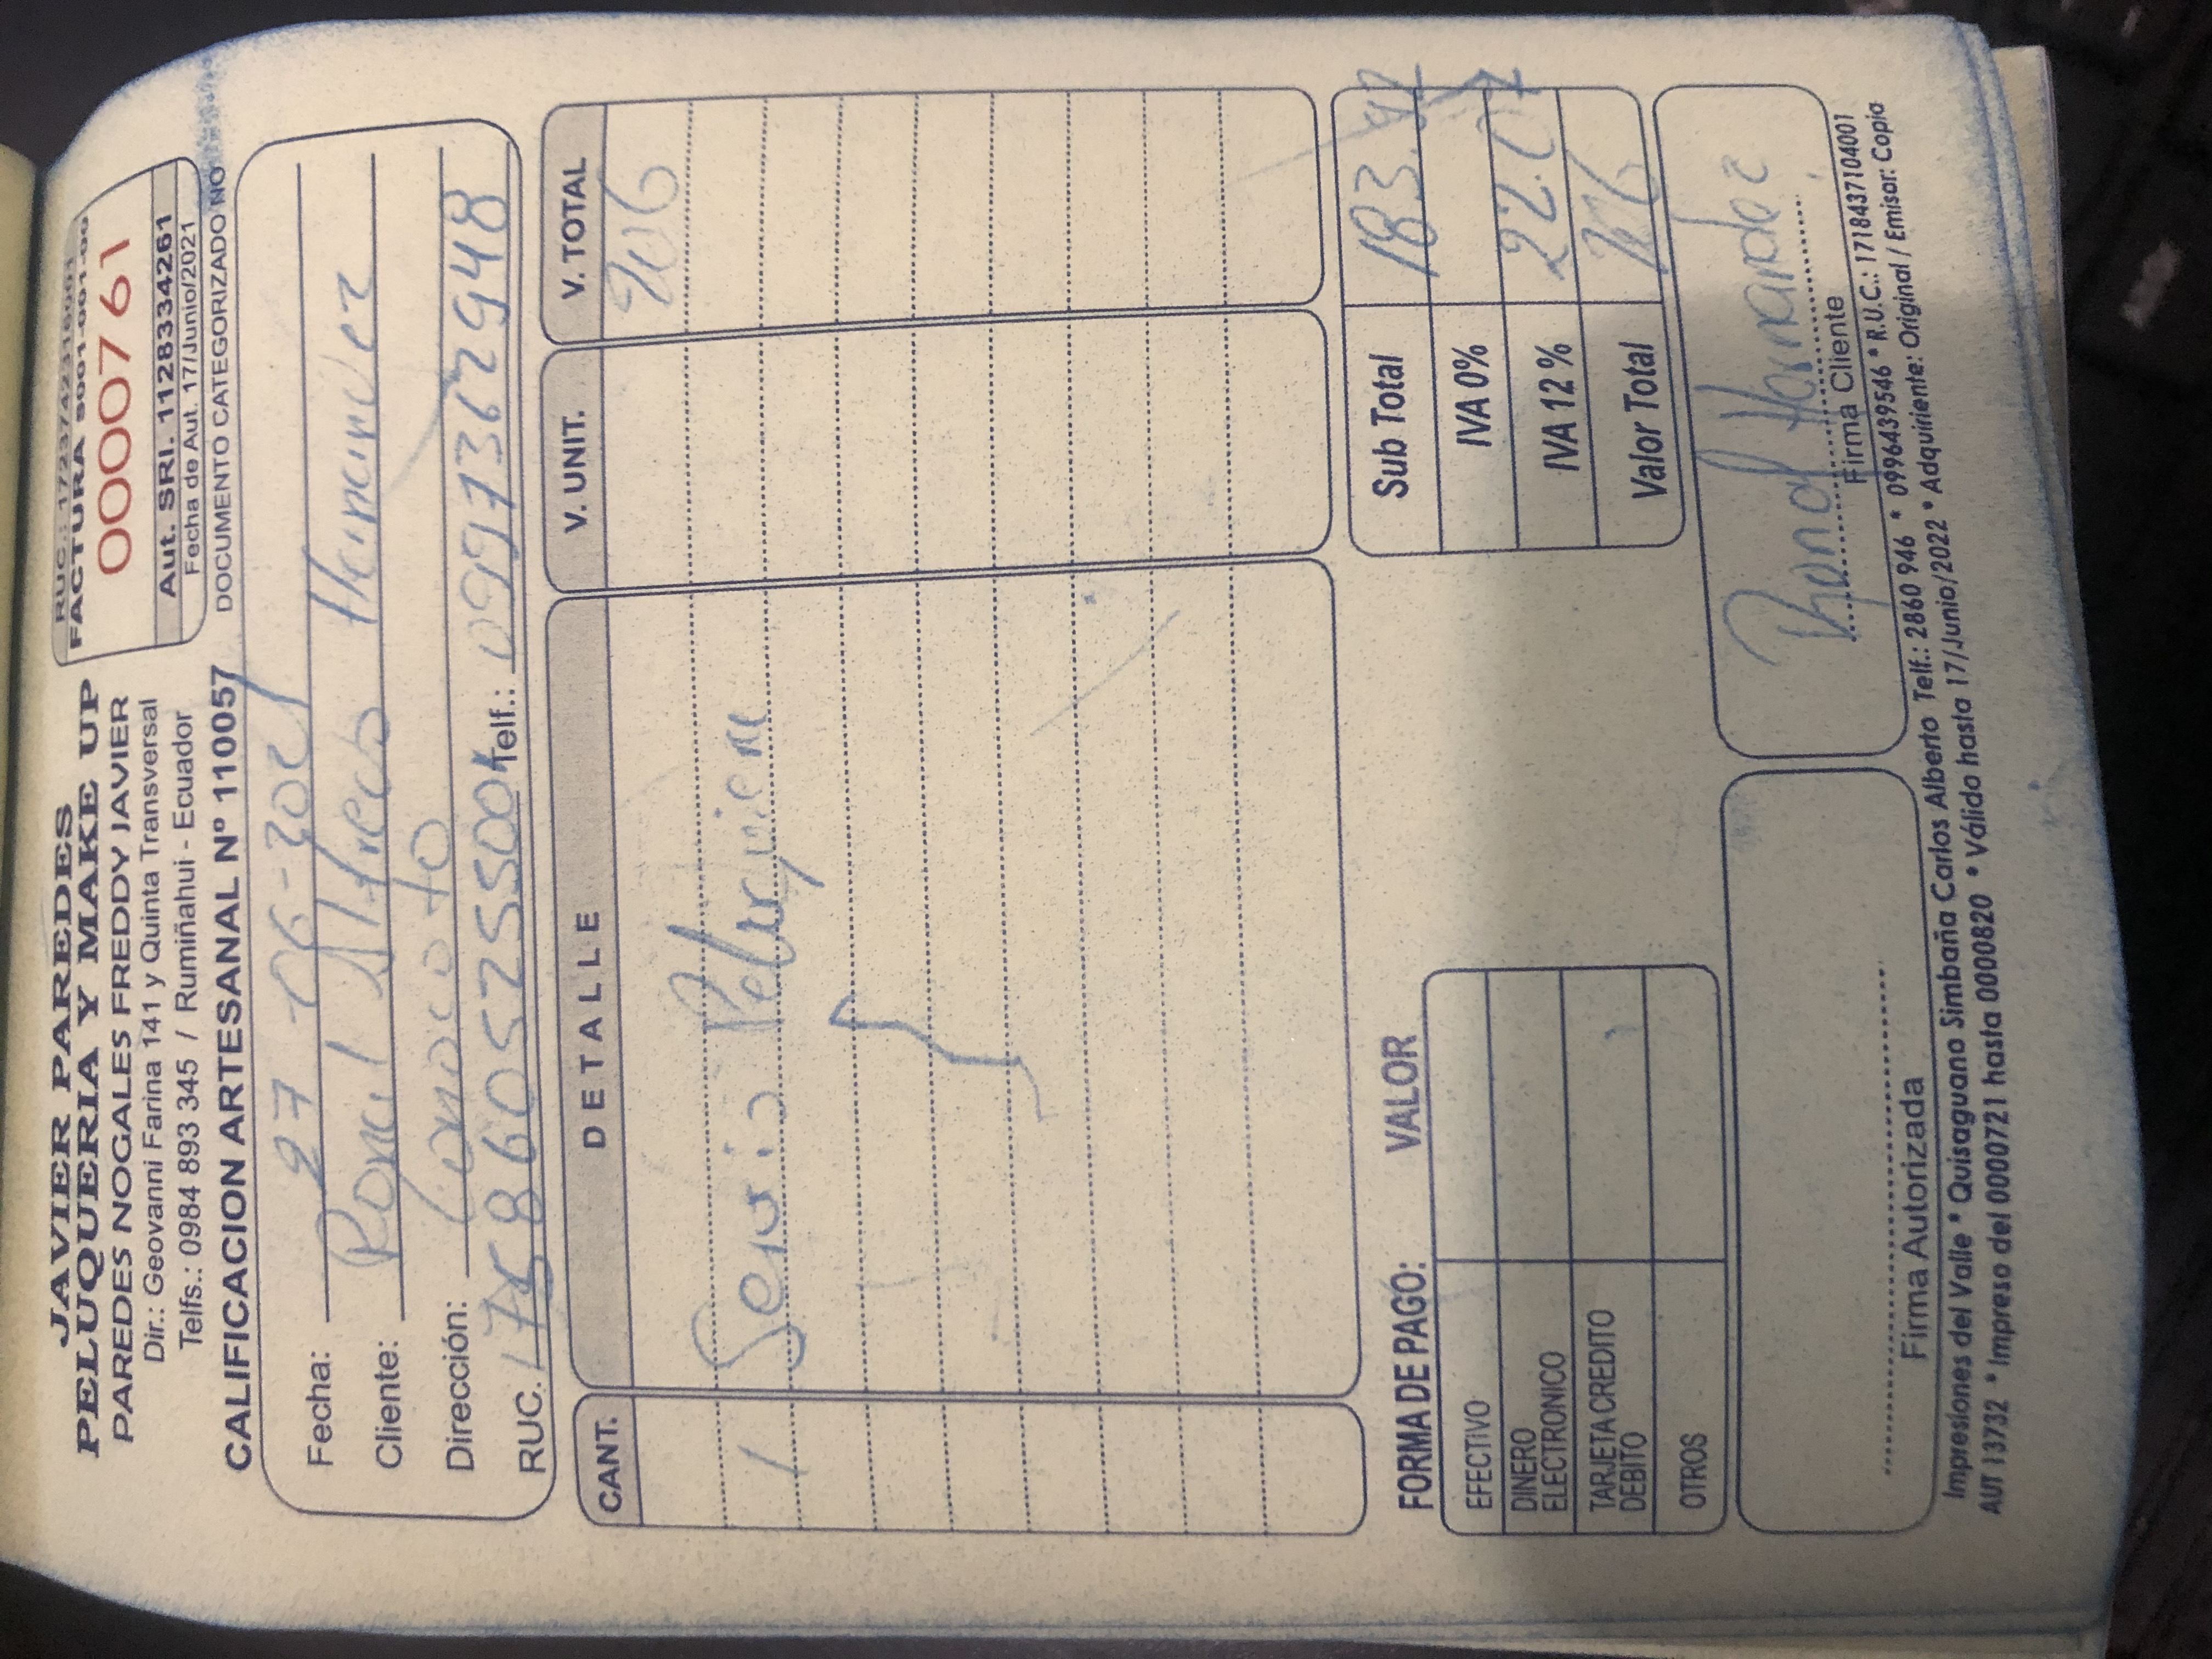 JAVIER PAREDES
PELUQUERIA Y MAKE UP
PAREDES NOGALES FREDDY JAVIER
Dir.: Geovanni Farina 141 y Quinta Transversal
Telfs.: 0984 893 345 / Rumiñahui - Ecuador
CALIFICACION ARTESANAL Nº 110057
RUC.: 1723742316001
FACTURA S001-001-00
0000761
Aut. SRI. 1128334261
Fecha de Aut. 17/Junio/2021
DOCUMENTO CATEGORIZADO NO
Fecha: 27-06-2021
Cliente: Ronal Alfredo Hernandez
Dirección: Conocoto
RUC. 1758605255001 Telf.: 0997362948
CANT. DETALLE V. UNIT. V. TOTAL
206
1 Servicio Peluquiera
FORMA DE PAGO: VALOR
EFECTIVO
DINERO ELECTRONICO
TARJETA CREDITO DEBITO
OTROS
Sub Total 183.92
IVA 0%
IVA 12% 22.07
Valor Total 206
Ronal Hernandez
Firma Autorizada
Firma Cliente
Impresiones del Valle * Quisaguano Simbaña Carlos Alberto Telf.: 2860 946 * 0996439546 * R.U.C.: 1718437104001
AUT 13732 * Impreso del 0000721 hasta 0000820 * Válido hasta 17/Junio/2022 * Adquiriente: Original / Emisor: Copia